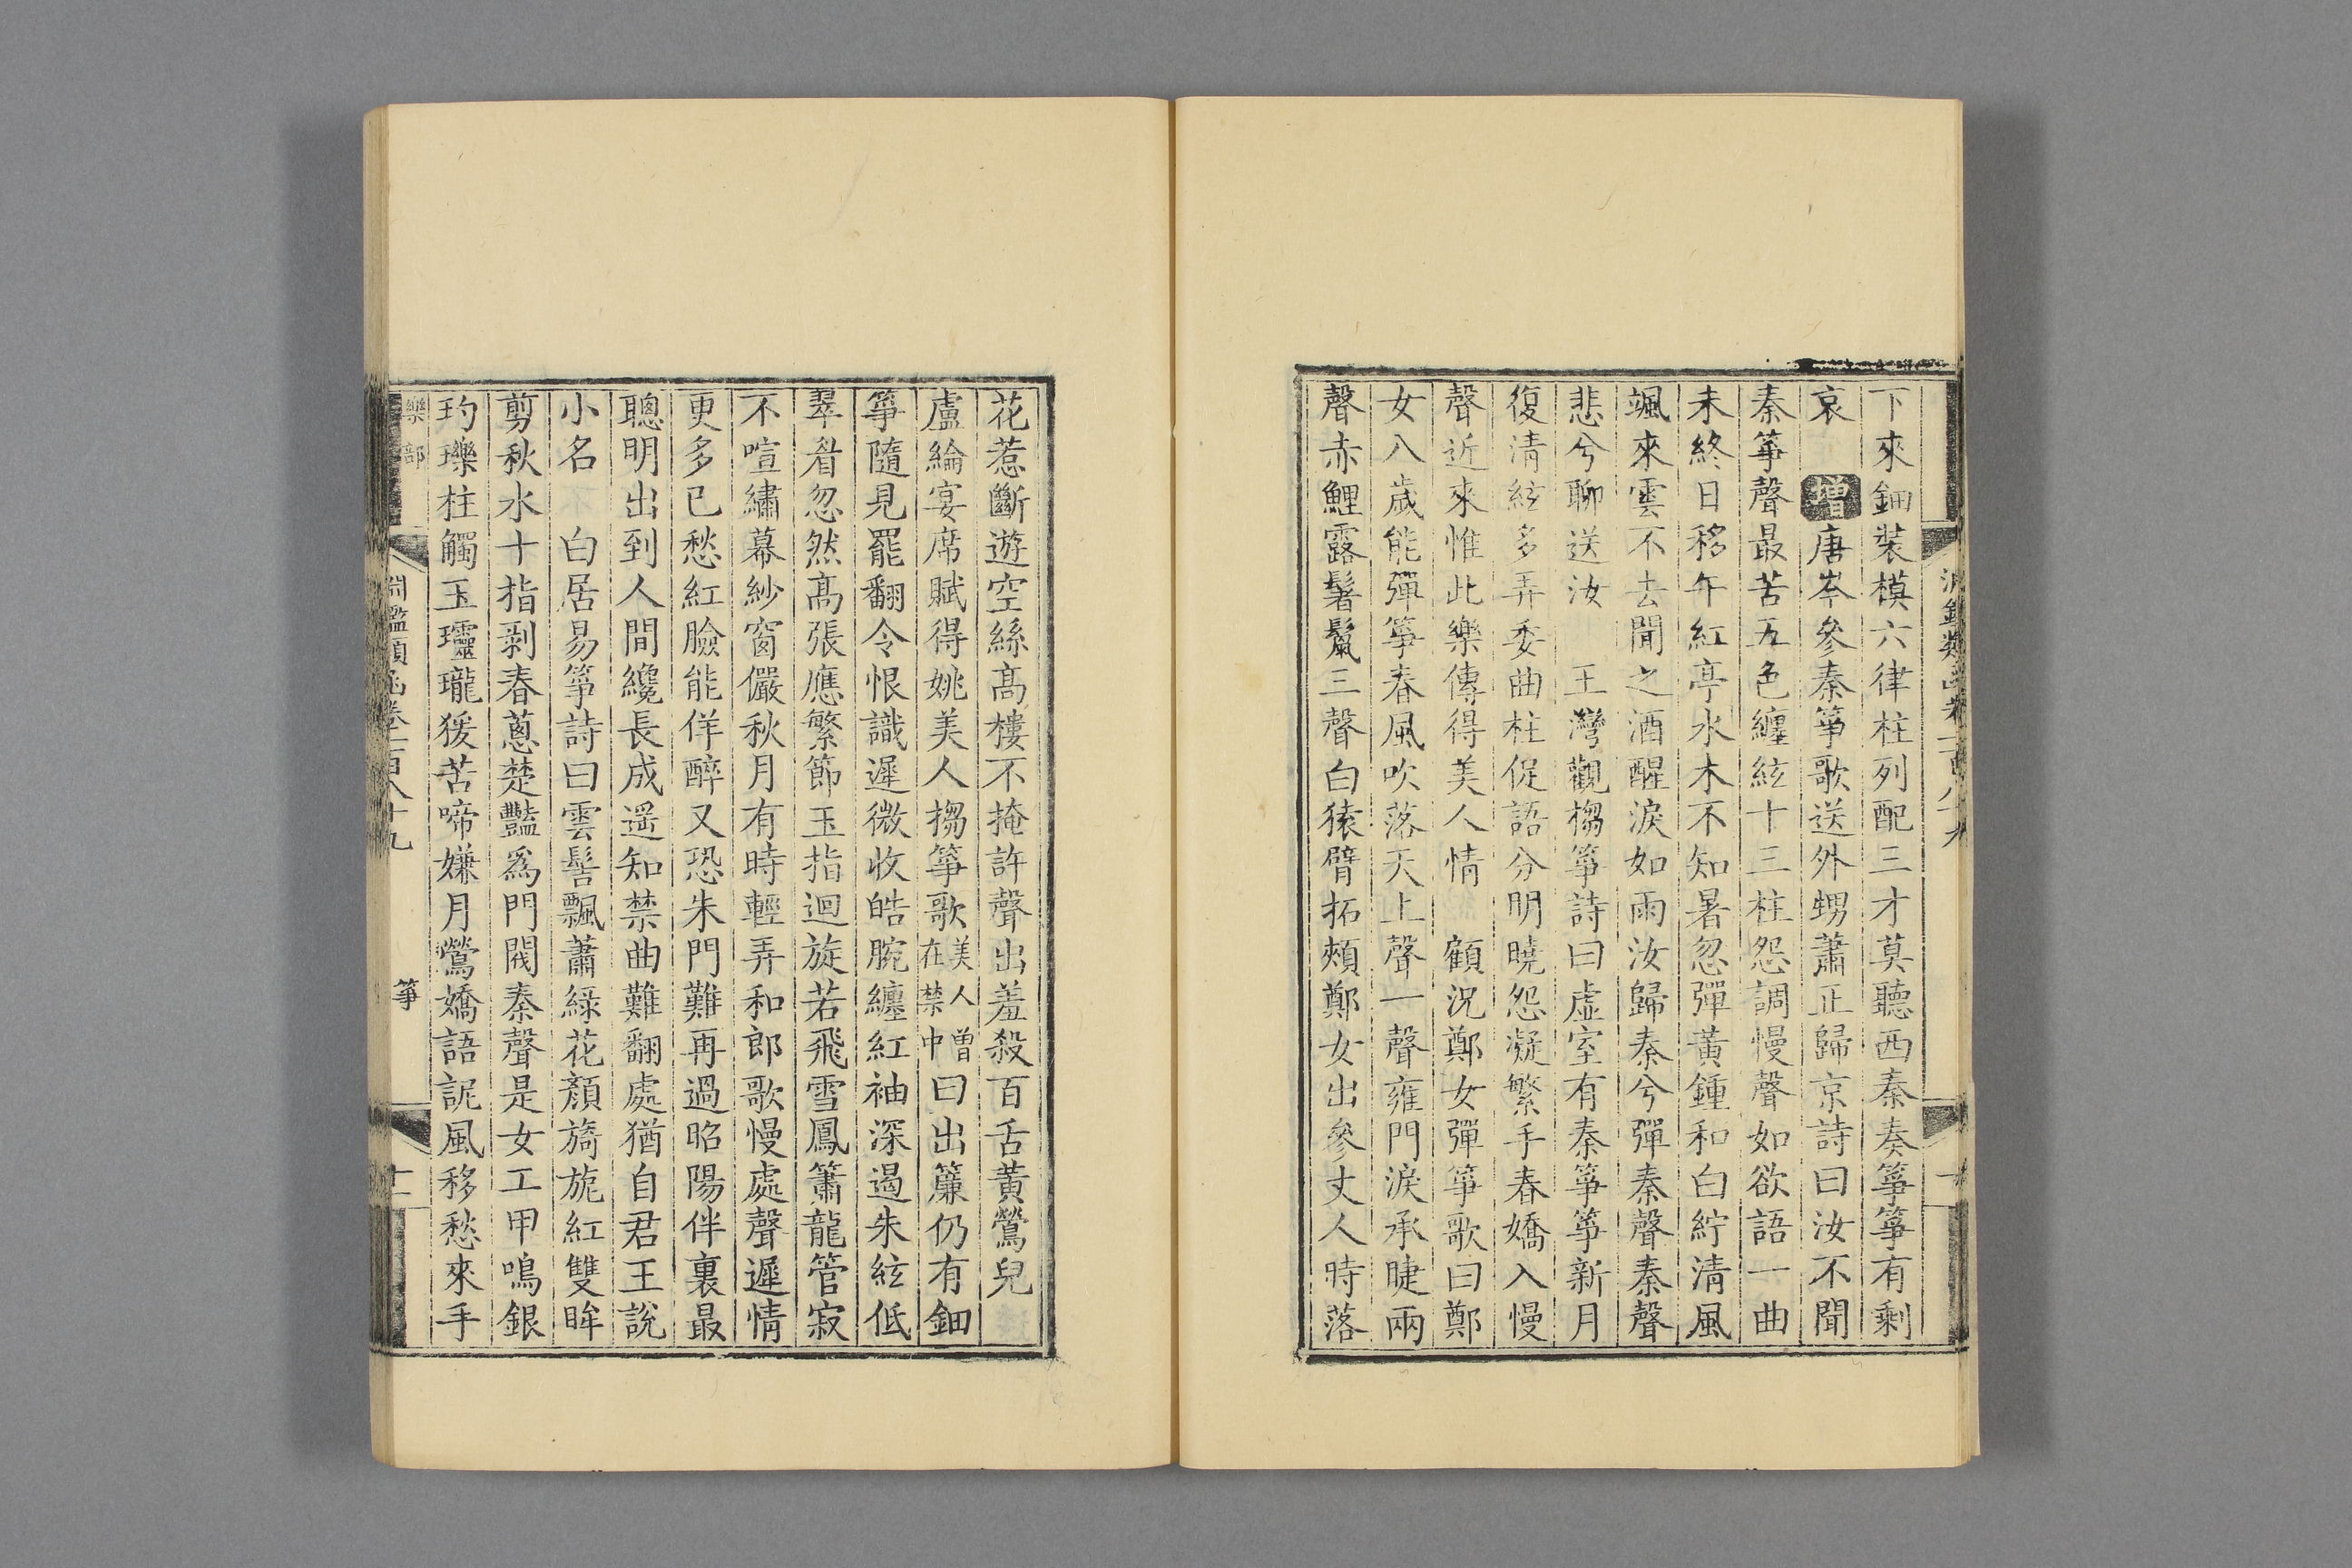 下來鈿裝模六律柱列配三才莫聽西秦奏箏箏有剩
哀 增唐岑參秦箏歌送外甥蕭正歸京詩曰汝不聞
秦箏聲最苦五色纏絃十三柱怨調慢聲如欲語一曲
未終日移午紅亭水木不知暑忽彈黃鍾和白紵清風
颯來雲不去聞之酒醒淚如雨汝歸秦兮彈秦聲秦聲
悲兮聊送汝 王灣觀搊箏詩曰虛室有秦箏箏新月
復清絃多弄委曲柱促語分明曉怨凝繁手春嬌入慢
聲近來惟此樂傳得美人情 顧況鄭女彈箏歌曰鄭
女八歲能彈箏春風吹落天上聲一聲雍門淚承睫兩
聲赤鯉露髻鬣三聲白猿臂拓頰鄭女出參丈人時落
花惹斷遊空絲高樓不掩許聲出羞殺百舌黃鶯兒
盧綸宴席賦得姚美人搊箏歌美人曾在禁中曰出簾仍有鈿
箏隨見罷翻令恨識遲微收皓腕纏紅袖深遏朱絃低
翠眉忽然高張應繁節玉指迴旋若飛雪鳳簫龍管寂
不喧繡幕紗窗儼秋月有時輕弄和郎歌慢處聲遲情
更多已愁紅臉能佯醉又恐朱門難再過昭陽伴裏最
聰明出到人間纔長成遥知禁曲難翻處猶自君王說
小名 白居易箏詩曰雲髻飄蕭綠花顏旖旎紅雙眸
剪秋水十指剥春蔥楚豔爲門閥秦聲是女工甲鳴銀
玓瓅柱觸玉玲瓏猨苦啼嫌月鶯嬌語詑風移愁來手
樂部
淵鑑類函卷一百八十九 箏 十一